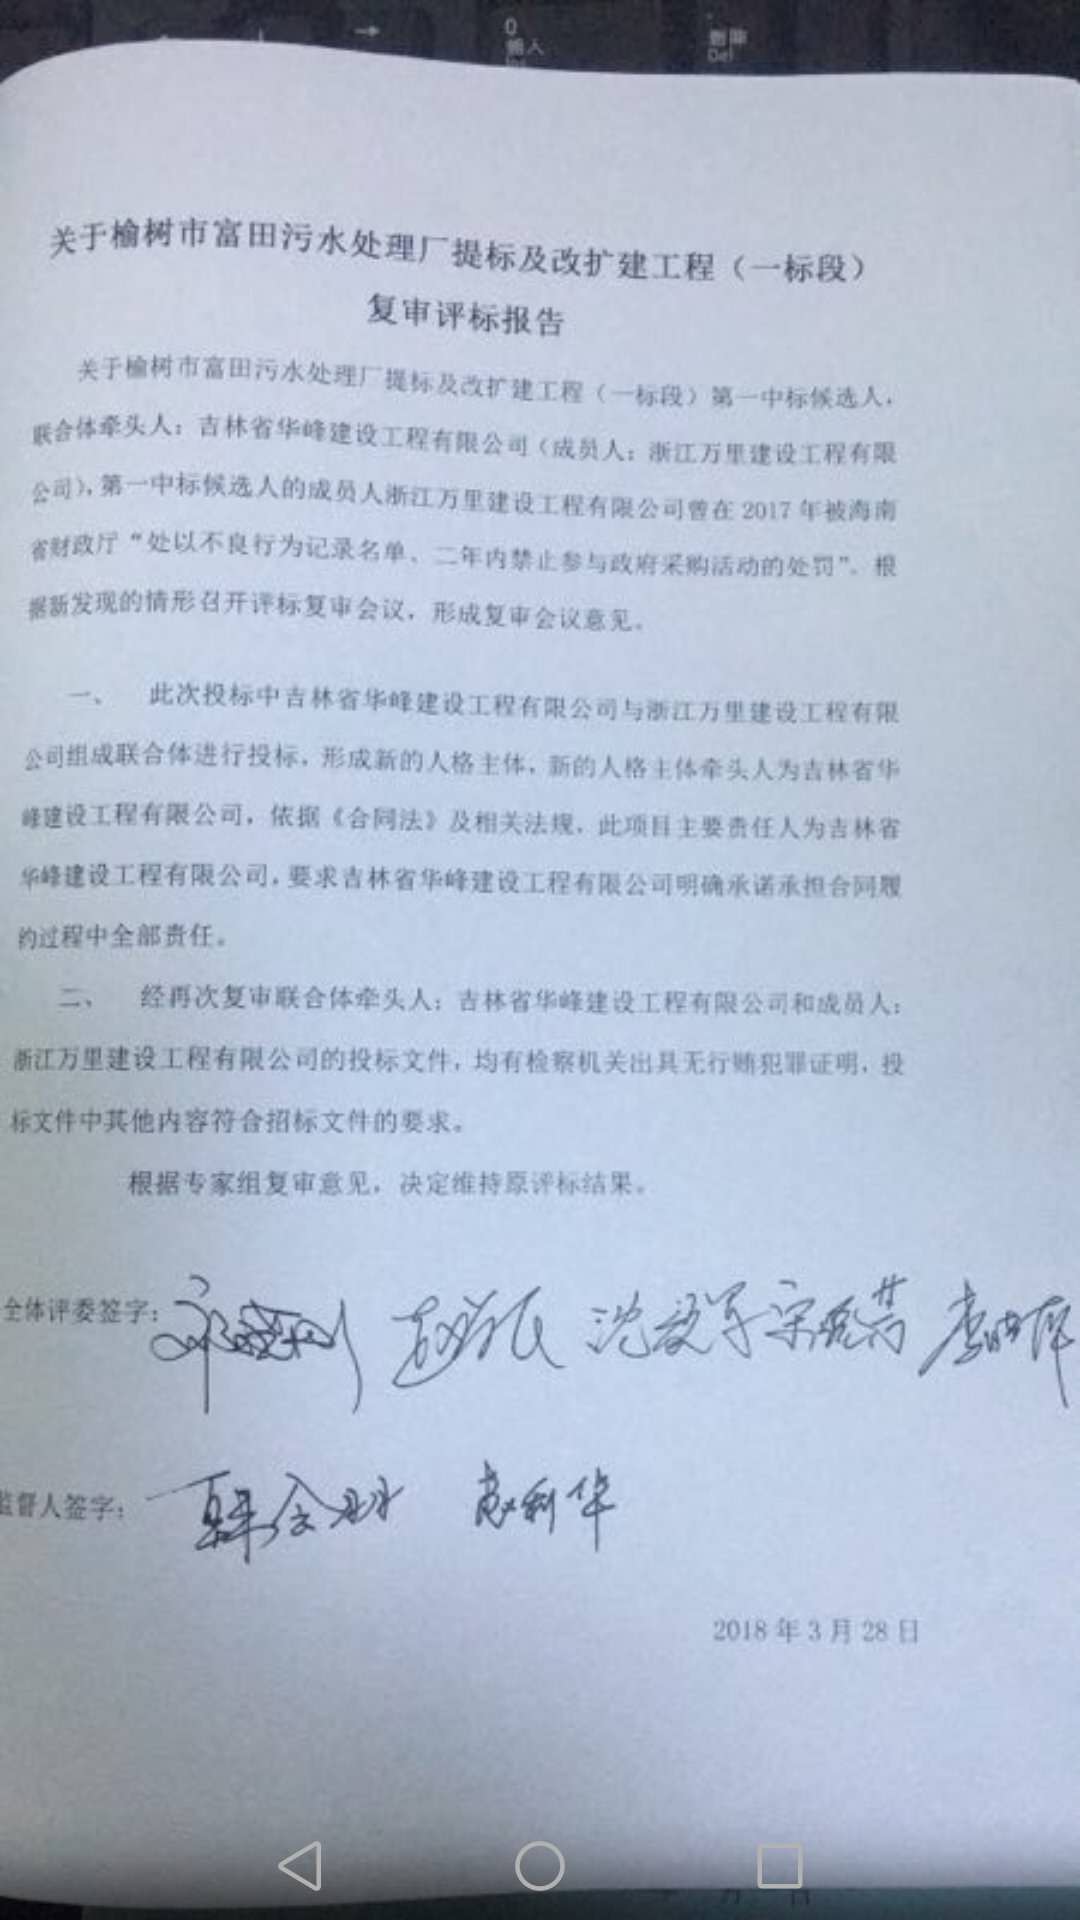 →
0
插入
删除
Del
关于榆树市富田污水处理厂提标及改扩建工程（一标段）
复审评标报告
关于榆树市富田污水处理厂提标及改扩建工程（一标段）第一中标候选人，
联合体牵头人：吉林省华峰建设工程有限公司（成员人：浙江万里建设工程有限
公司），第一中标候选人的成员人浙江万里建设工程有限公司曾在 2017 年被海南
省财政厅“处以不良行为记录名单、二年内禁止参与政府采购活动的处罚”。根
据新发现的情形召开评标复审会议，形成复审会议意见。
一、 此次投标中吉林省华峰建设工程有限公司与浙江万里建设工程有限
公司组成联合体进行投标，形成新的人格主体，新的人格主体牵头人为吉林省华
峰建设工程有限公司，依据《合同法》及相关法规，此项目主要责任人为吉林省
华峰建设工程有限公司，要求吉林省华峰建设工程有限公司明确承诺承担合同履
约过程中全部责任。
二、 经再次复审联合体牵头人：吉林省华峰建设工程有限公司和成员人：
浙江万里建设工程有限公司的投标文件，均有检察机关出具无行贿犯罪证明，投
标文件中其他内容符合招标文件的要求。
根据专家组复审意见，决定维持原评标结果。
全体评委签字：
监督人签字：
2018 年 3 月 28 日